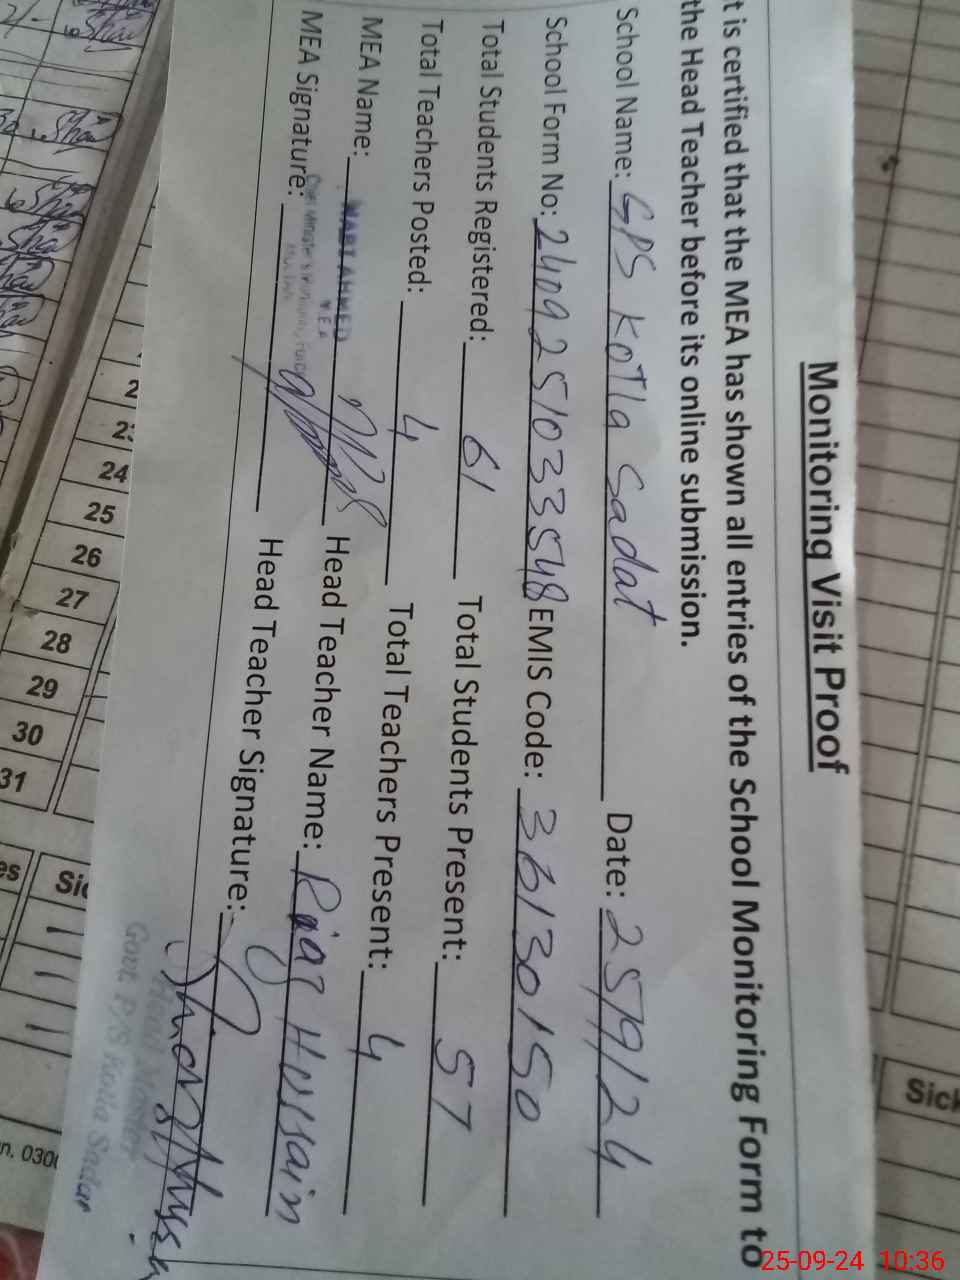 Monitoring Visit Proof
t is certified that the MEA has shown all entries of the School Monitoring Form to
the Head Teacher before its online submission.
School Name: GPS Kotla Sadat Date: 25/9/24
School Form No: 24092510333548 EMIS Code: 36130150
Total Students Registered: 61 Total Students Present: 57
Total Teachers Posted: 4 Total Teachers Present: 4
MEA Name: AHMED Head Teacher Name: Riaz Hussain
MEA
MEA Signature: Head Teacher Signature:
Head Master
Govt. P/S Kotla Sadat
24
25
26
27
28
29
30
31
Sick
n. 030
25-09-24 10:36